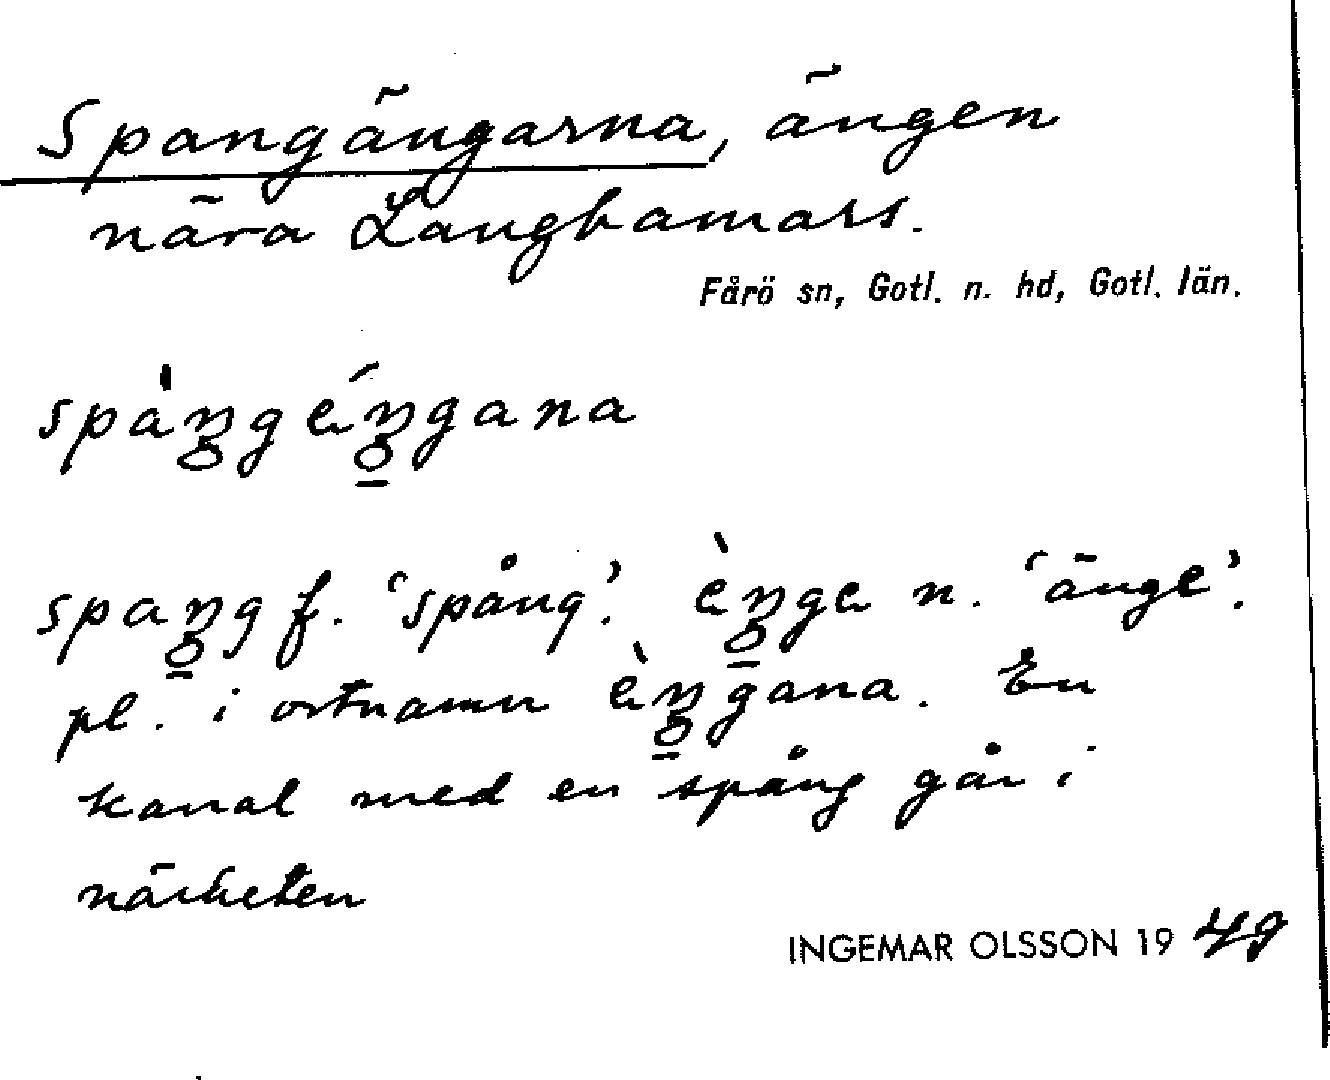 Spangängarna, ängen
nära Langhamars.
Fårö sn, Gotl. n. hd, Gotl. län.
spàŋgéŋgana
spaŋg f. 'spång'. èŋge n. 'änge'.
pl. i ortnamn èŋgana. En
kanal med en spång går i
närheten
INGEMAR OLSSON 1949